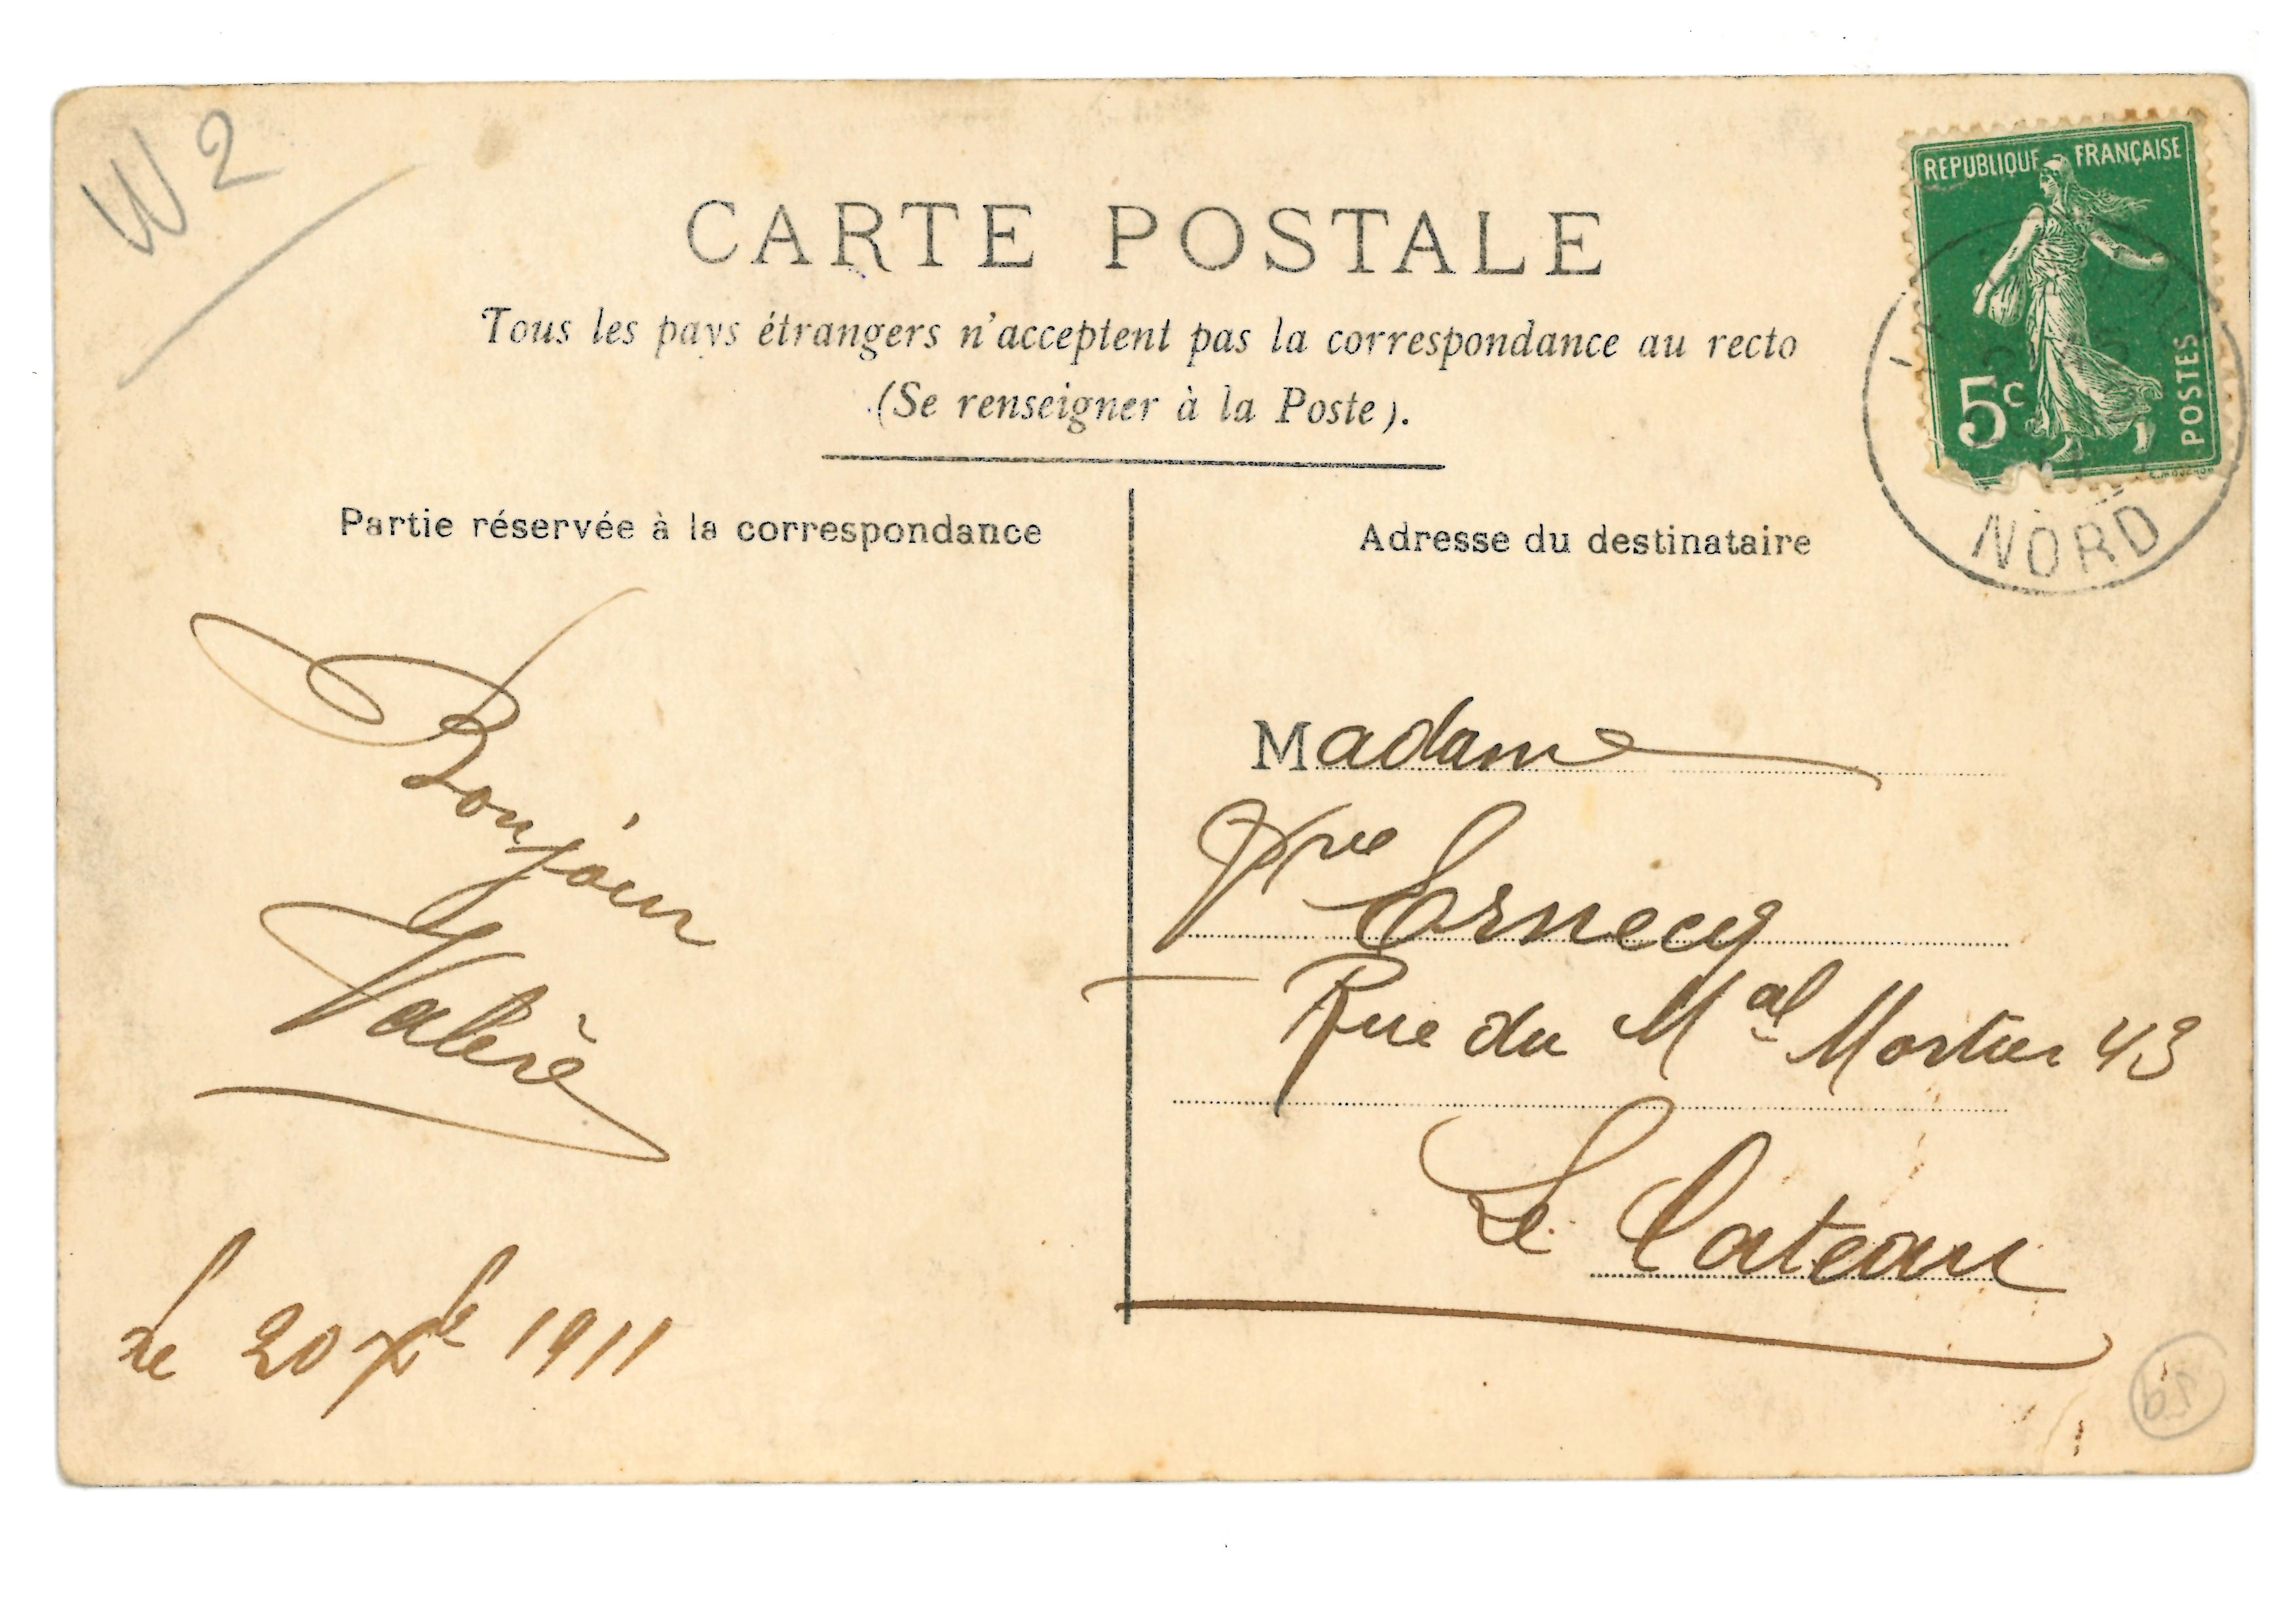 W 2
CARTE POSTALE
Tous les pays étrangers n'acceptent pas la correspondance au recto
(Se renseigner à la Poste).
REPUBLIQUE FRANÇAISE
5c
POSTES
NORD
Partie réservée à la correspondance
Bonjour
Valère
le 20 Xbre 1911
Adresse du destinataire
Madame
Vve Ernecq
Rue du Mal Mortier 43
Le Cateau